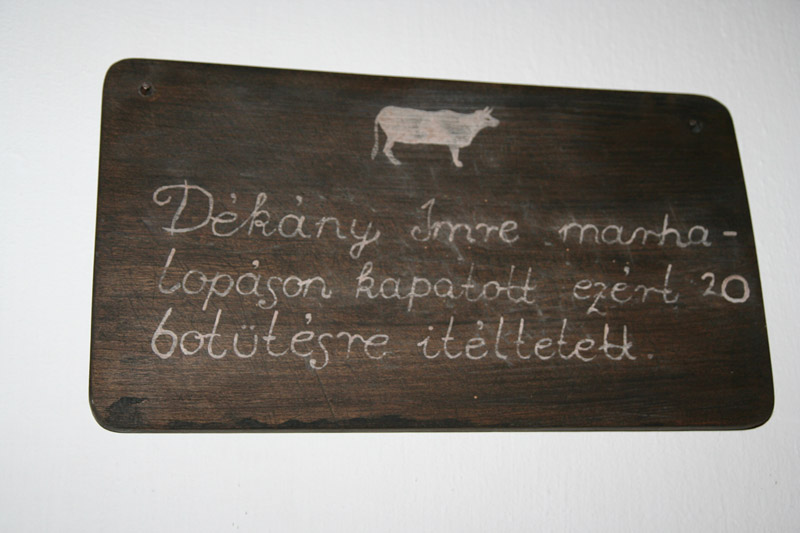 Dékány Imre marha-
lopáson kapatott ezért 20
botütésre itéltetett.